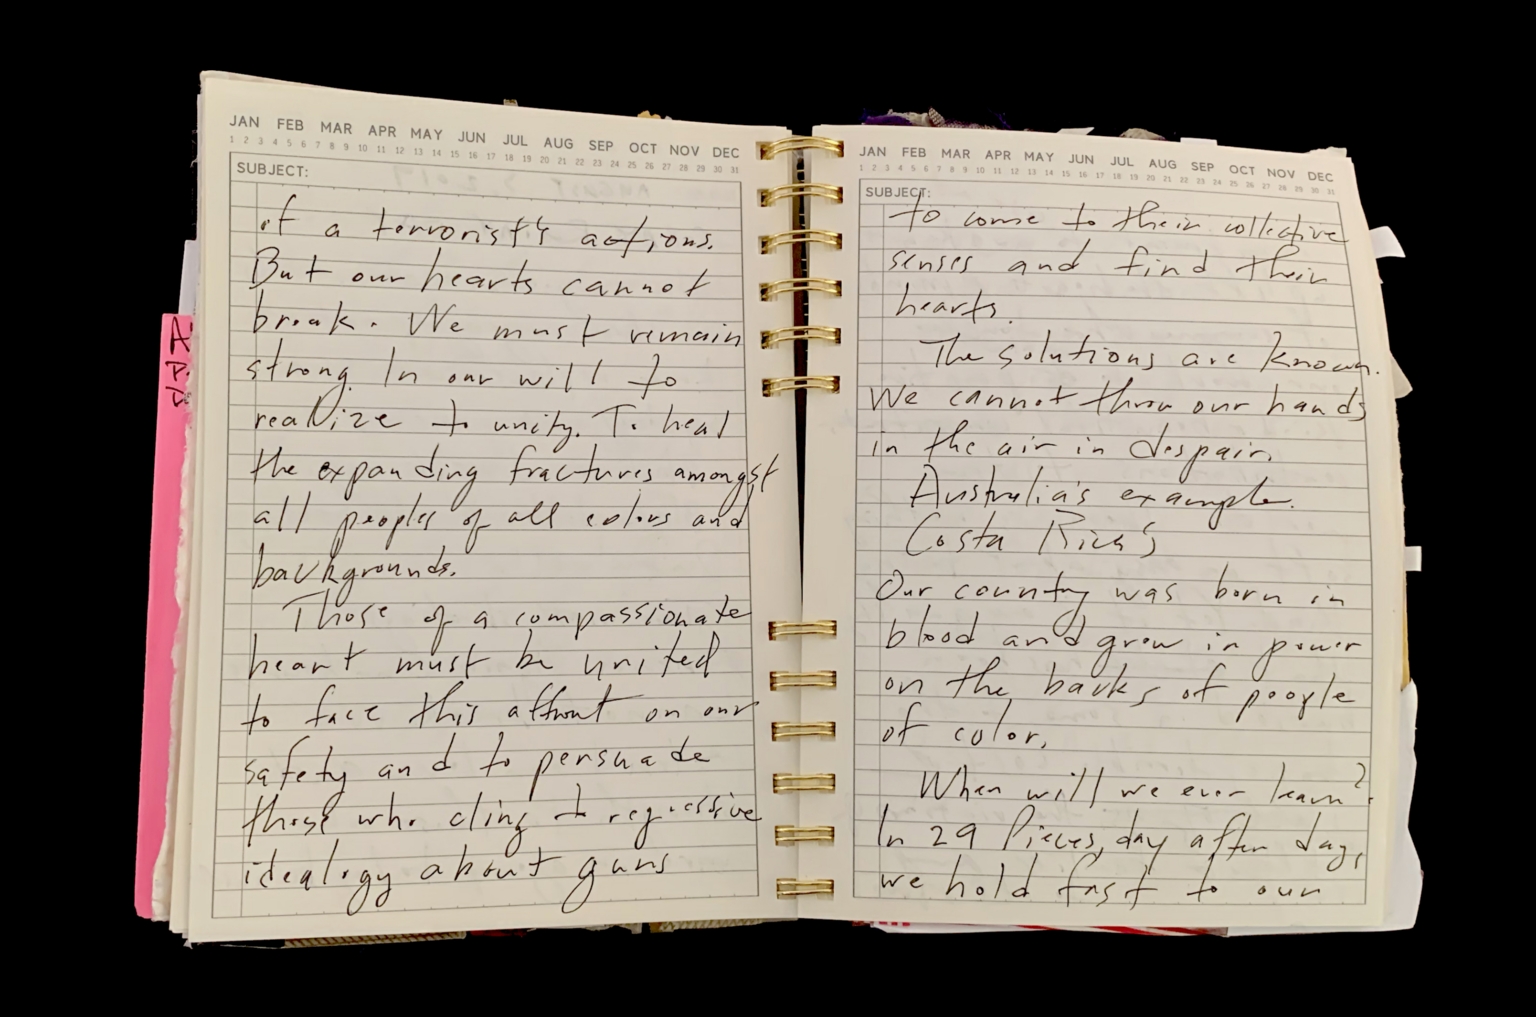 JAN FEB MAR APR MAY JUN JUL AUG SEP OCT NOV DEC
1 2 3 4 5 6 7 8 9 10 11 12 13 14 15 16 17 18 19 20 21 22 23 24 25 26 27 28 29 30 31
SUBJECT:
of a terrorist's actions.
But our hearts cannot
break. We must remain
strong. In our will to
realize to unity. To heal
the expanding fractures amongst
all peoples of all colors and
backgrounds.
Those of a compassionate
heart must be united
to face this affront on our
safety and to persuade
those who cling to regressive
idealogy about guns
JAN FEB MAR APR MAY JUN JUL AUG SEP OCT NOV DEC
1 2 3 4 5 6 7 8 9 10 11 12 13 14 15 16 17 18 19 20 21 22 23 24 25 26 27 28 29 30 31
SUBJECT:
to come to their collective
senses and find their
hearts.
The solutions are known.
We cannot throw our hands
in the air in despair.
Australia's example.
Costa Rica's
Our country was born in
blood and grew in power
on the backs of people
of color.
When will we ever learn?
In 29 Pieces, day after day,
we hold fast to our